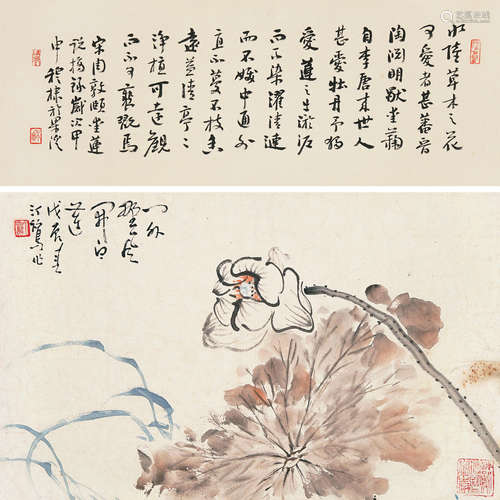 水陸草木之花
可愛者甚蕃晉
陶淵明獨愛菊
自李唐來世人
甚愛牡丹予獨
愛蓮之出淤泥
而不染濯清漣
而不妖中通外
直不蔓不枝香
遠益清亭亭
淨植可遠觀
而不可褻翫焉
宋周敦頤愛蓮
說摘錄歲次甲
申
門外
野風
開白
蓮
戊辰春